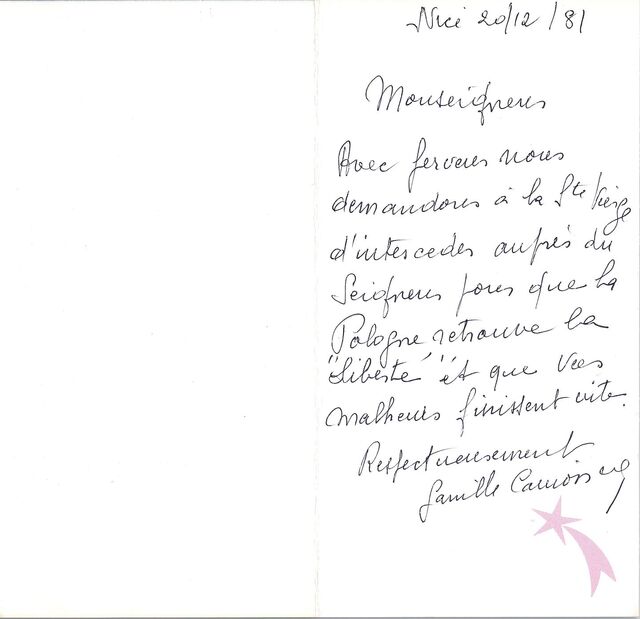 Nice 20/12/81
Monseigneur
Avec ferveur nous
demandons à la Ste Vierge
d'interceder auprès du
Seigneur pour que la
Pologne retrouve la
"Liberté" et que Vos
malheurs finissent vite.
Respectueusement.
famille